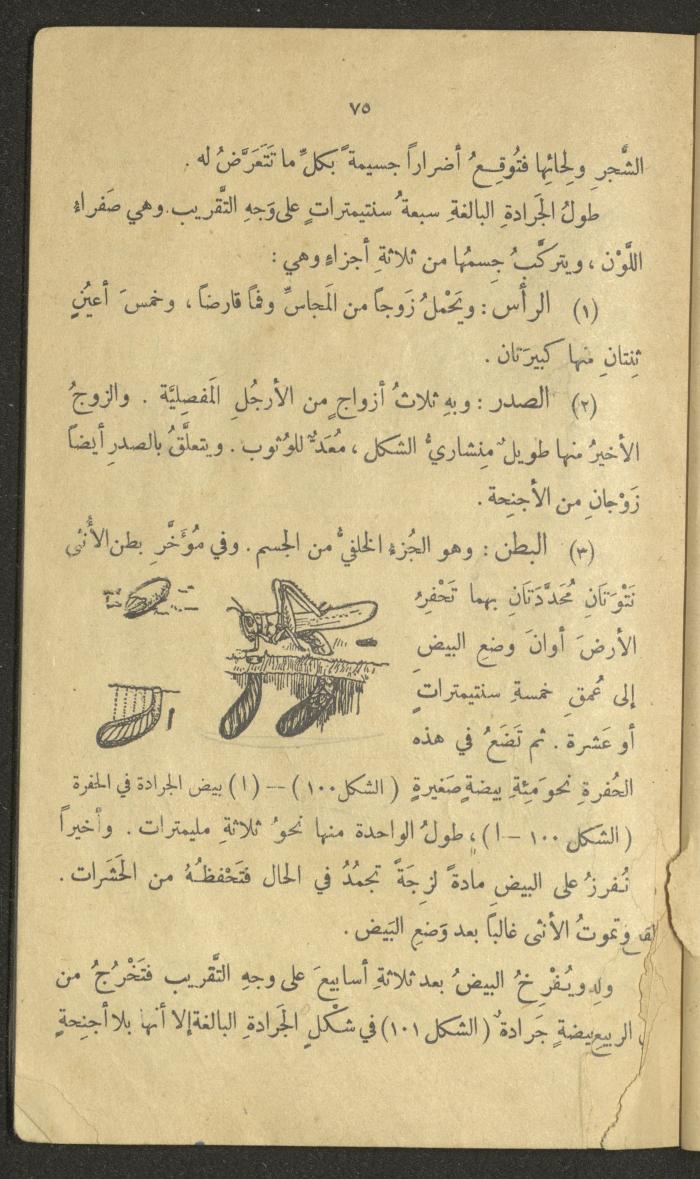 ٧٥
الشَّجرِ ولِحائِها فتُوقِعُ أضراراً جسيمةً بكلِّ ما تَتَعَرَّضُ له .
طولُ الجَرادةِ البالغةِ سبعةُ سنتيمتراتٍ على وَجهِ التَّقريب . وهي صَفراءُ
اللَّوْن ، ويتركَّبُ جِسمُها من ثلاثةِ أجزاءٍ وهي :
(١) الرأْس : ويَحْملُ زَوجاً من المَجاسِّ وفماً قارضاً ، وخمسَ أعيُنٍ
ثِنتانِ منها كبيرَتان .
(٢) الصدر : وبهِ ثلاثُ أزواجٍ من الأرجُلِ المَفصِليَّة . والزوجُ
الأخيرُ منها طويلٌ مِنشاريُّ الشكل ، مُعَدٌّ للوُثوب . ويتعلَّقُ بالصدرِ أيضاً
زَوْجانِ من الأجنِحة .
(٣) البطن : وهو الجُزءُ الخلفيُّ من الجسم . وفي مُؤَخَّرِ بطنِ الأُنثى
نَتْوَتَانِ مُحَدَّدَتَانِ بهما تَحْفِرُ
الأرضَ أوانَ وضعِ البيض
إلى عُمقِ خمسةِ سنتيمتراتٍ
أو عَشرة . ثم تَضَعُ في هذه
الحُفرةِ نحوَ مِئةِ بيضةٍ صَغيرةٍ (الشكل ١٠٠) – (ا) بيض الجرادة في الحفرة
(الشكل ١٠٠ – ا) ، طولُ الواحدة منها نحوُ ثلاثةِ مليمترات . وأخيراً
تُفرزُ على البيضِ مادةً لزِجَةً تجمُدُ في الحال فتَحْفظُهُ من الحَشَرات .
وتموتُ الأنثى غالباً بعد وَضعِ البَيض .
ويُفْرِخُ البيضُ بعد ثلاثةِ أسابيعَ على وجهِ التَّقريب فتَخْرُجُ من
بيضةٍ جَرادةٌ (الشكل ١٠١) في شكْلِ الجَرادةِ البالغة إلا أنها بلا أجنِحةٍ